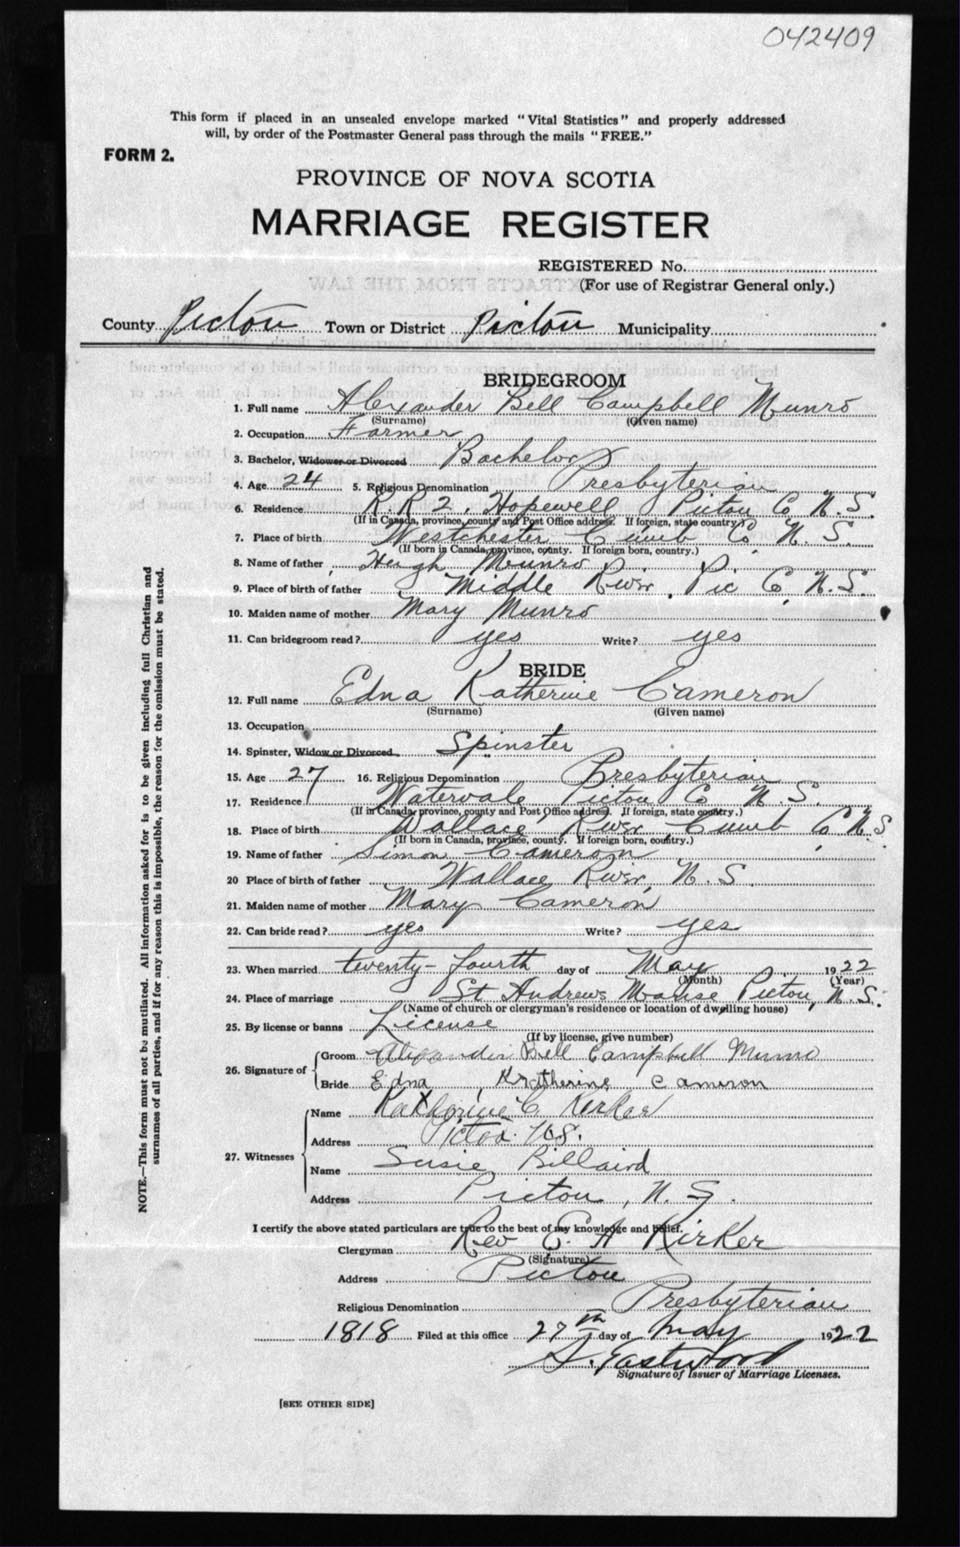 042409
This form if placed in an unsealed envelope marked "Vital Statistics" and properly addressed
will, by order of the Postmaster General pass through the mails "FREE."
FORM 2.
PROVINCE OF NOVA SCOTIA
MARRIAGE REGISTER
REGISTERED No.
(For use of Registrar General only.)
County Pictou Town or District Pictou Municipality
BRIDEGROOM
1. Full name Alexander Bell Campbell Munro
(Surname) (Given name)
2. Occupation Farmer
3. Bachelor, Widower or Divorced Bachelor
4. Age 24 5. Religious Denomination Presbyterian
6. Residence R.R 2, Hopewell Pictou Co N.S.
(If in Canada, province, county and Post Office address. If foreign, state country.)
7. Place of birth Westchester Cumb Co N.S.
(If born in Canada, province, county. If foreign born, country.)
8. Name of father Hugh Munro
9. Place of birth of father Middle River, Pic Co, N.S.
10. Maiden name of mother Mary Munro
11. Can bridegroom read? yes Write? yes
BRIDE
12. Full name Edna Katherine Cameron
(Surname) (Given name)
13. Occupation
14. Spinster, Widow or Divorced Spinster
15. Age 27 16. Religious Denomination Presbyterian
17. Residence Watervale Pictou Co N.S.
(If in Canada, province, county and Post Office address. If foreign, state country.)
18. Place of birth Wallace River Cumb Co, N.S
(If born in Canada, province, county. If foreign born, country.)
19. Name of father Simon Cameron
20 Place of birth of father Wallace River, N.S.
21. Maiden name of mother Mary Cameron
22. Can bride read? yes Write? yes
23. When married twenty-fourth day of May 1922
(Month) (Year)
24. Place of marriage St Andrews Manse Pictou, N.S.
(Name of church or clergyman's residence or location of dwelling house)
25. By license or banns License
(If by license, give number)
26. Signature of Groom Alexander Bell Campbell Munro
Bride Edna Kratherine Cameron
27. Witnesses
Name Katherine C. Kirker
Address Pictou N.S.
Name Susie Billaird
Address Pictou, N.S.
I certify the above stated particulars are true to the best of my knowledge and belief.
Clergyman Rev E. A Kirker
(Signature)
Address Pictou
Religious Denomination Presbyterian
1818 Filed at this office 27th day of May 1922
S. Eastwood
Signature of Issuer of Marriage Licenses.
[SEE OTHER SIDE]
NOTE.—This form must not be mutilated. All information asked for is to be given including full Christian and
surnames of all parties, and if for any reason this is impossible, the reason for the omission must be stated.